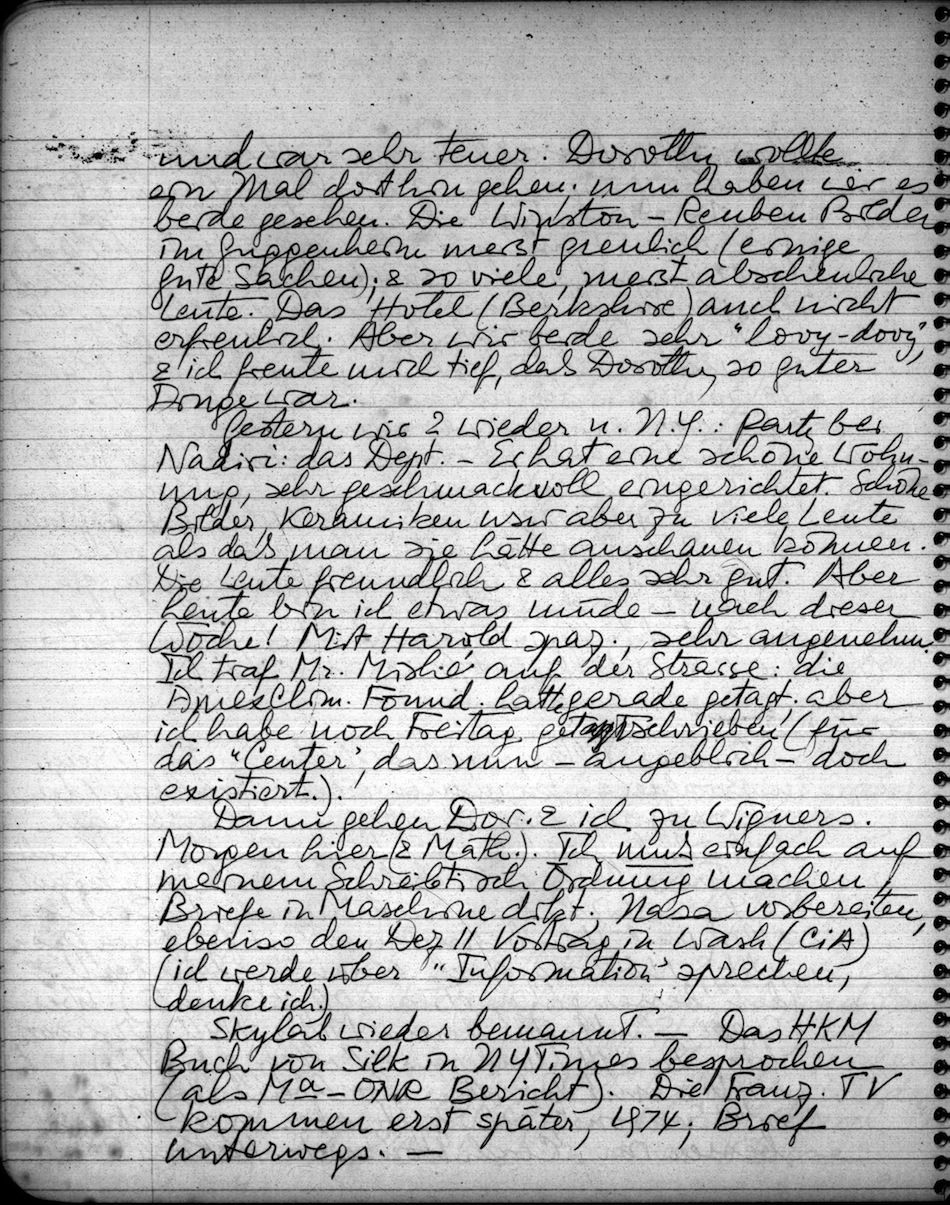 und war sehr teuer. Dorothy wollte
ein Mal dorthin gehen; nun haben wir es
beide gesehen. Die Winston – Reuben Bilder
im Guggenheim meist greulich (einige
gute Sachen); & so viele, meist abscheuliche
Leute. Das Hotel (Berkshire) auch nicht
erfreulich. Aber wir beide sehr "lovy-dovy",
& ich freute mich tief, daß Dorothy so guter
Dinge war.
Gestern wir 2 wieder n. N.Y.: Party bei
Nadiri: das Dept. – Er hat eine schöne Wohn-
ung, sehr geschmackvoll eingerichtet. Schöne
Bilder, Keramiken usw aber zu viele Leute
als daß man sie hätte anschauen können.
Die Leute freundlich & alles sehr gut. Aber
heute bin ich etwas müde – nach dieser
Woche! Mit Harold spaz., sehr angenehm.
Ich traf Mr. auf der Strasse: die
Found. hatte gerade getagt. aber
ich habe noch Freitag geschrieben (für
das "Center", das nun – angeblich – doch
existiert.).
Dann gehen Dor. & ich zu Wigners.
Morgen hier (& Math.). Ich muß einfach auf
meinem Schreibtisch Ordnung machen,
Briefe in Maschine dikt. Nasa vorbereiten,
ebenso den Dez 11 Vortrag in Wash (CiA)
(ich werde über "Information" sprechen,
denke ich.)
Skylab wieder bemannt. — Das HKM
Buch von Silk in NYTimes besprochen
(als Ma – ONR Bericht). Die Franz. TV
kommen erst später, 1974; Brief
unterwegs. —